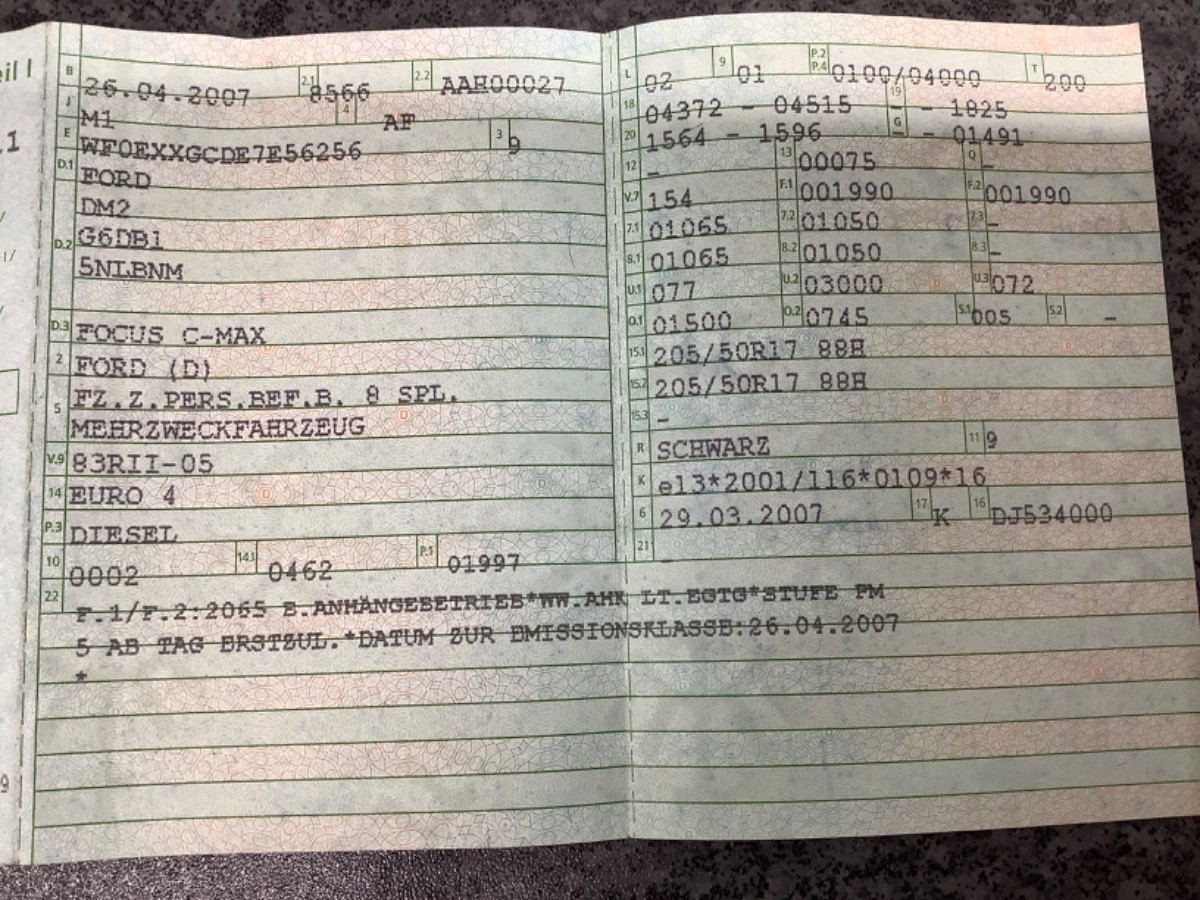 eil I
B 26.04.2007 2.1 8566 2.2 AAH00027
J M1 4 AF
E WF0EXXGCDE7E56256 3 9
D.1 FORD
DM2
D.2 G6DB1
5NLBNM
D.3 FOCUS C-MAX
2 FORD (D)
5 FZ.Z.PERS.BEF.B. 8 SPL.
MEHRZWECKFAHRZEUG
V.9 83RII-05
14 EURO 4
P.3 DIESEL
10 0002 14.1 0462 P.1 01997
L 02 9 01 P.2 P.4 0100/04000 T 200
18 04372 - 04515 19 - - 1825
20 1564 - 1596 G - - 01491
12 - 13 00075 Q -
V.7 154 F.1 001990 F.2 001990
7.1 01065 7.2 01050 7.3 -
8.1 01065 8.2 01050 8.3 -
U.1 077 U.2 03000 U.3 072
O.1 01500 O.2 0745 S.1 005 S.2 -
15.1 205/50R17 88H
15.2 205/50R17 88H
15.3 -
R SCHWARZ 11 9
K e13*2001/116*0109*16
6 29.03.2007 17 K 16 DJ534000
21 -
22 F.1/F.2:2065 B.ANHÄNGEBETRIEB*WW.AHK LT.EGTG*STUFE PM
5 AB TAG ERSTZUL.*DATUM ZUR EMISSIONSKLASSE:26.04.2007
*